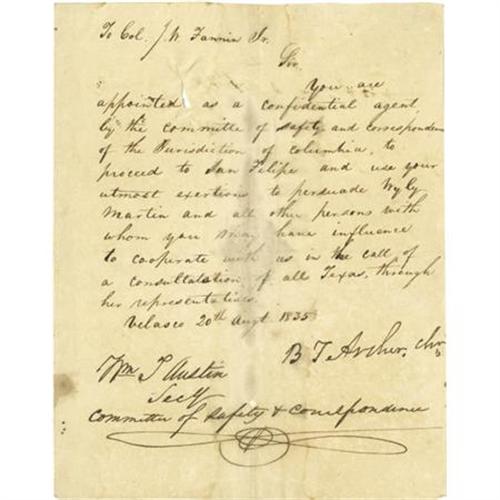 To Col. J. W. Fannin Jr.
Sir.
You are
appointed as a confidential agent
by the committe of safety and correspondence
of the Jurisdiction of Columbia, to
proceed to San Filipe and use your
utmost exertions to persuade Wyly
Martin and all other persons with
whom you may have influence
to cooperate with us in the call of
a consultatation of all Texas, through
her representatives.
Velasco 20th Augt 1835
B T Archer, chn
Wm T Austin
Secy
Committee of Safety & Correspondence